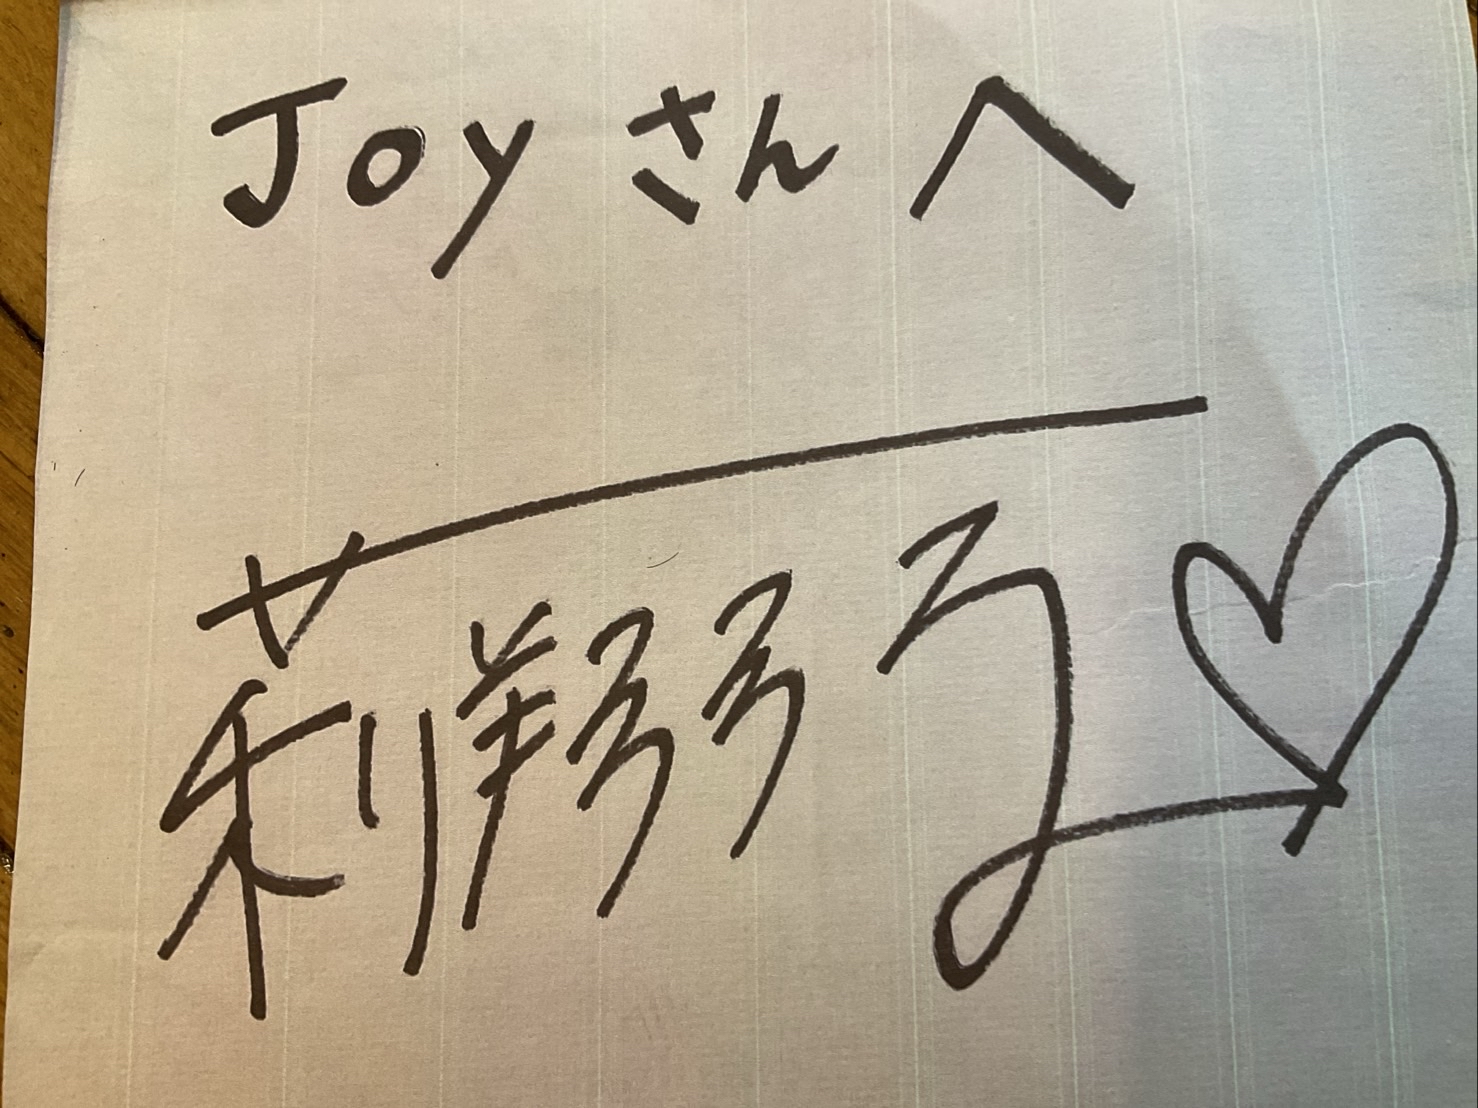 Joyさんへ
莉翔子